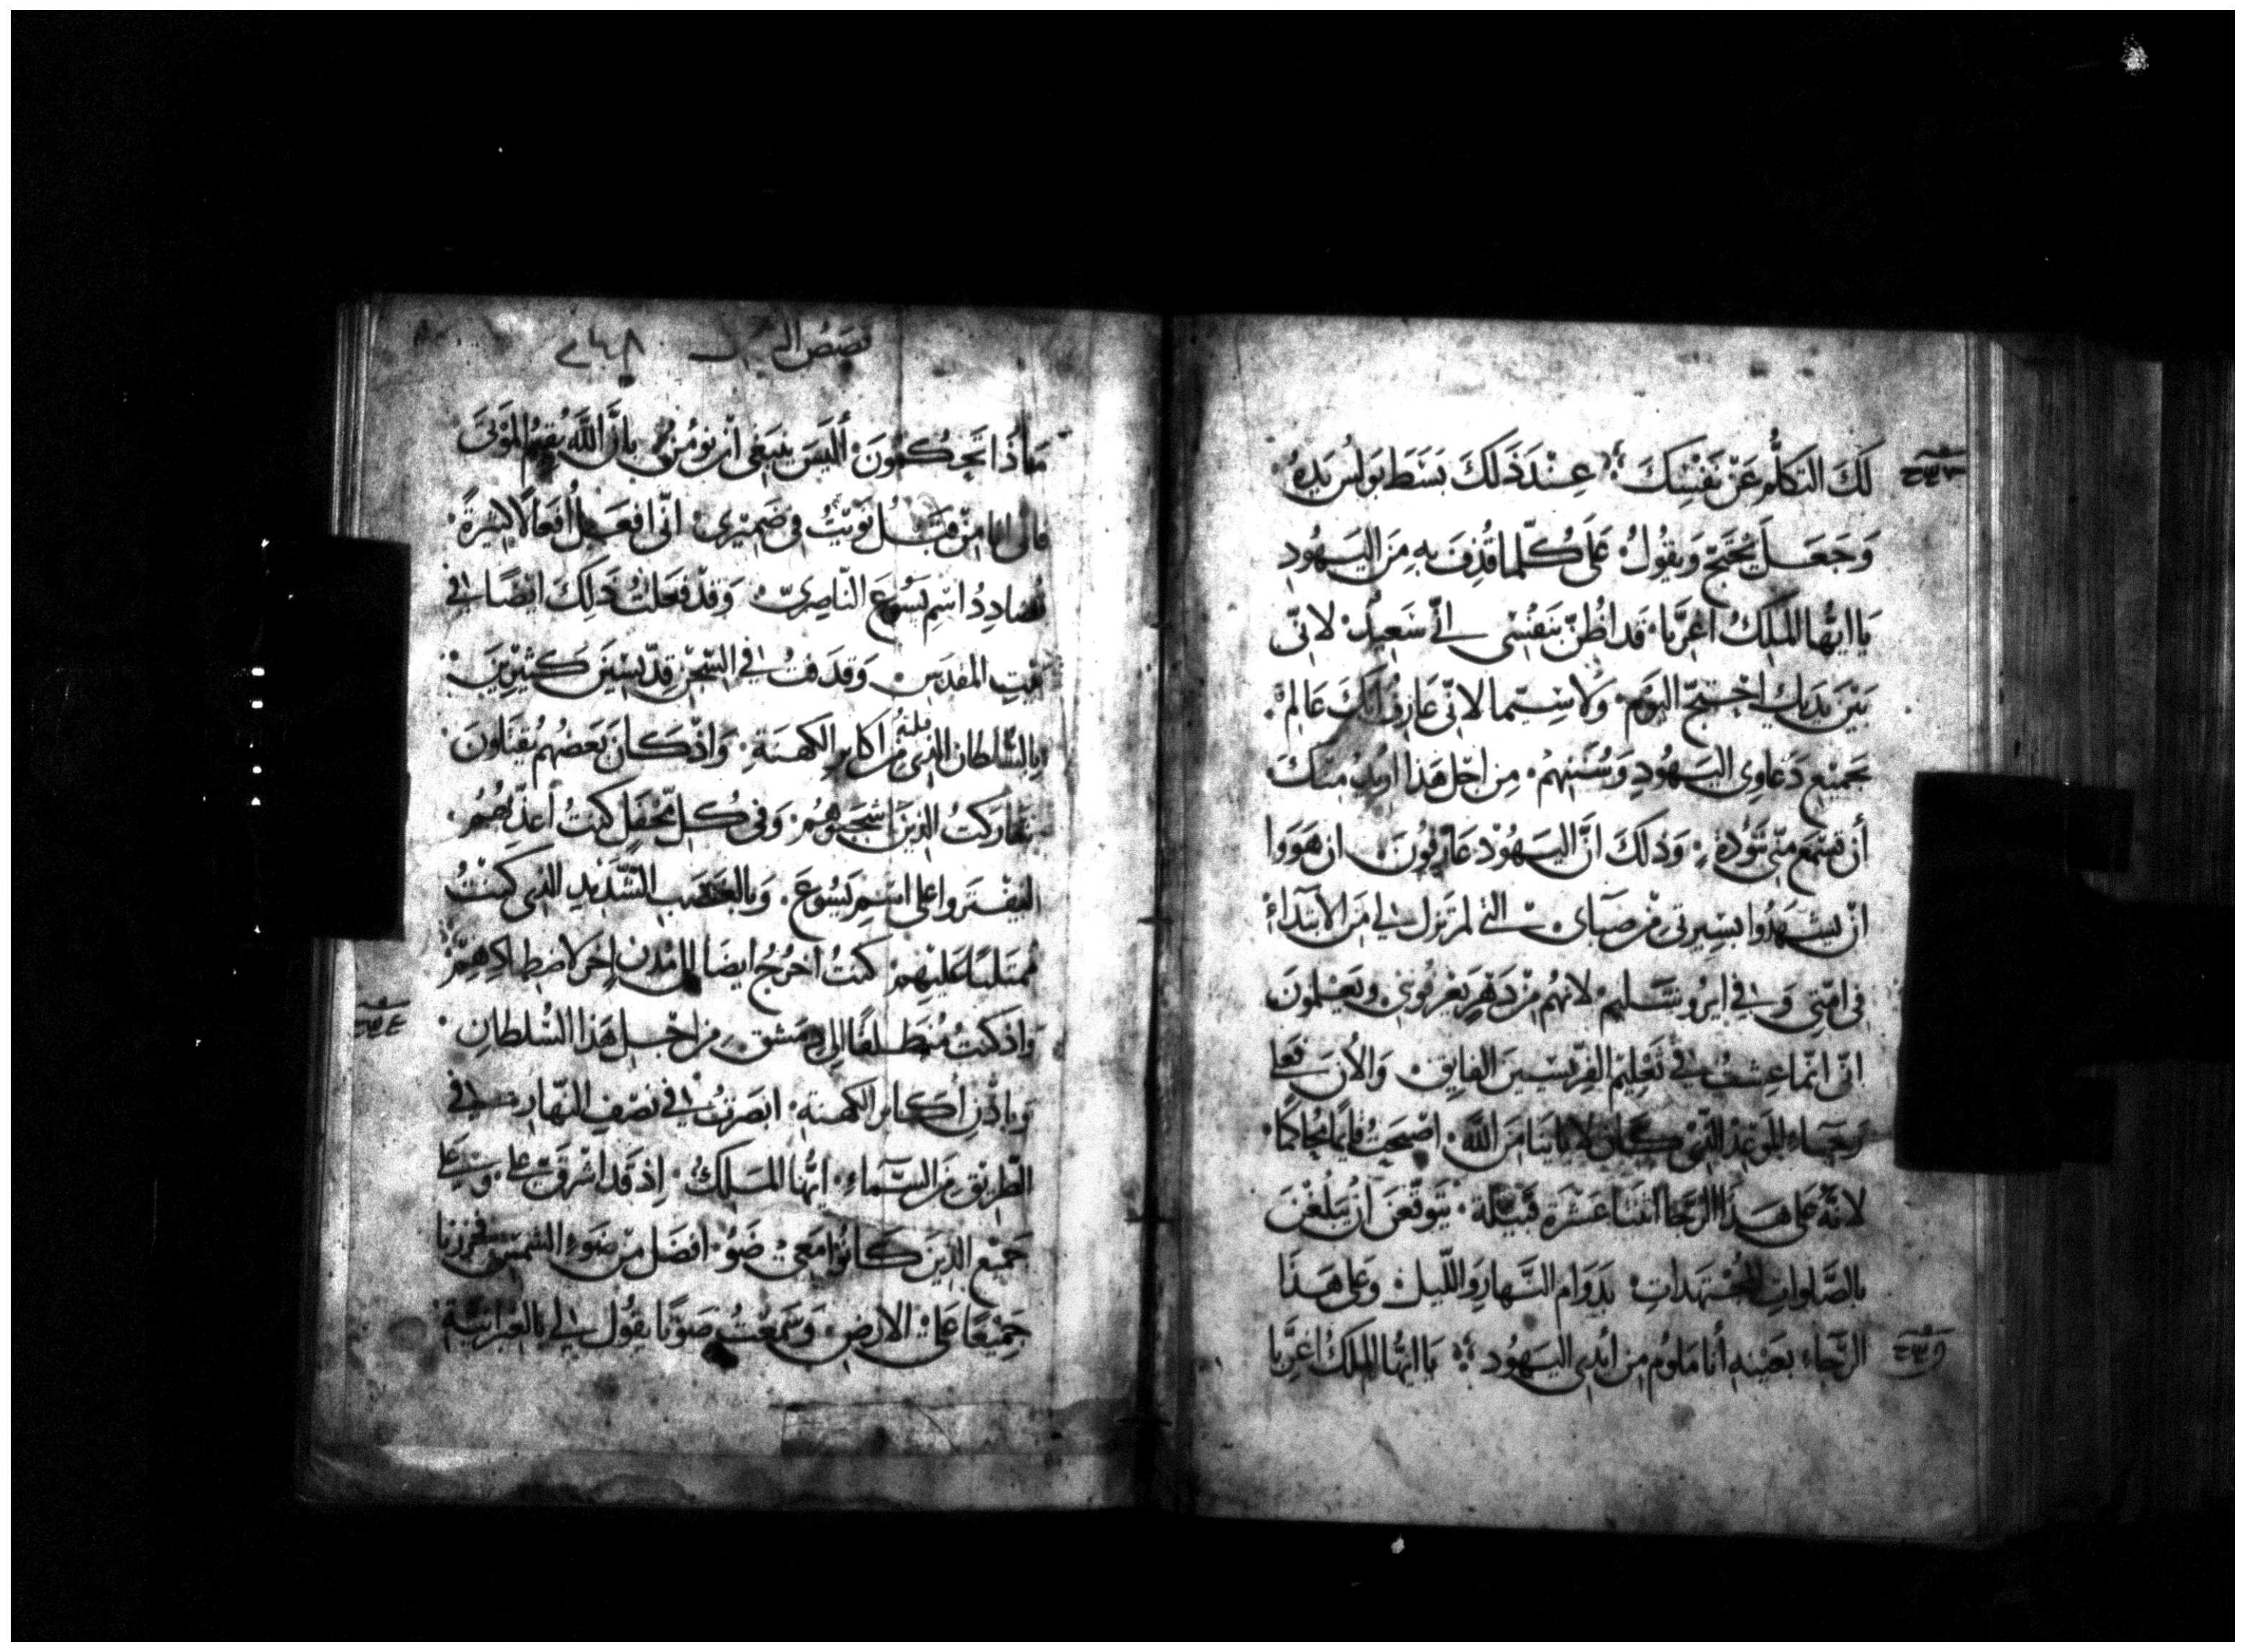 لَكَ التَكلُّمُ عَنْ نَفْسِكَ عِنْدَ ذَلكَ بَسَطَ بَولُس يَدِهُ
وَجَعَلَ يُحْتَجّ وَيقُولُ عَلَى كُلّما قُذِفَ بهِ مِنَ اليَهُودِ
يَا ايُّها المَلِكُ اغرَّبا قَد اظُنّ بنَفْسِى انّي سَعِيدٌ لانّى
بَيْنَ يَديكَ احْتَجّ اليَوْم وَلاسِيّما لانّى عَارِفُ انّكَ عَالمِ
بجَمِيْعِ دَعَاوِى اليَهُودِ وَسُنَنِهِمْ مِن اجْل هَذا اريدُ مِنكَ
أن تستمع منّى بتَؤُدةٍ وَذلكَ انَّ اليَهُوْدَ عَارِفُونَ ان هَوَوا
انْ يشْهَدُوا بسِيرتى مْن صَباىَ التى لم تَزل لي مَن الابتداءْ
فى امّتِى وَفي ايرُوشَليم لانهُم مْن دَهرٍ يَعْرِفُونى ويَعْلمونَ
انّى انّما عِشتُ في تَعْلِيْم الفِرّيسيينَ الفايق وَالأن فَعلى
رَجَاءِ المَوعِدُ الذّى كَانَ لابَاينا مَن الله اصْبَحتُ قايمًا محُاكمًا
لانّهُ عَلى هَذَا الرّجا اثنتا عَشْرَة قَبْيلَة يَتوقّعنَ انْ يَبلغْنَ
بالصّلواتِ المُجْتهَداتِ بَدَوَام النّهارِ واللّيل وعَلى هَذَا
الرّجاء بعَيْنهِ أنا مَلوُم من ايْدِى اليَهُود يَا ايّها المَلكُ اغرَّبا
قصَصُ
مَاذَا تَحْكمُونَ ألَيسَ ينبَغى أن نؤمن بانَّ اللَّه يُقِيمُ المَوتىَ
فانى انا مِنْ قَبْلُ نوَيْتُ فى ضَمِيْرى انّى افعَلُ أفعَالًا كثيرةً
تُضَادِدُ اسْمِ يَسُوْعَ النّاصِرىّ وَقدْ فعَلتُ ذَلِكَ ايْضًا في
بَيتِ المقدَسِ وَقدَفتُ في السّجْنِ قِدّيسْيَن كَثِيْرِيْنَ
بالسّلطان الذى قلتهُ مْن اكابرِ الكهَنةِ وَاذْ كَانَ بَعضُهُم يُقتَلونَ
شاركتُ الذينَ اشجَبوْهُمْ وَفى كُل مَحْفَلٍ كنتُ اُعذّبُهُمُ
ليَفْتَروا عَلى اسْمِ يَسُوعَ وَبالغَضَبِ الشّدِيْدِ الذى كُنْتُ
مُمتَليًا عَليْهِمْ كنتُ اخرُجُ ايضَا الى مُدنٍ اخرَ لاضطِهادِهِمْ
وَاذ كنتُ مُنطَلقًا الى دِمَشق مْن اجْل هَذا السُّلطانِ
وَباذْنِ أكَابرِ الكهنة ابصَرتُ في نصْفِ النّهارِ في
الطّريق مَن السّمَاءِ ايُّها المَلِكُ اِذ قَد اشْرقَ عَليّ وَعَلى
جَميْعِ الذينَ كَانوا مَعىْ ضَوٌ افضَل مْن ضَوءِ الشمسْ فخررنا
جَمِيْعًا عَلى الارْضِ وَسَمعْتُ صَوتًا يقُول لي بالعِبْرانيّة